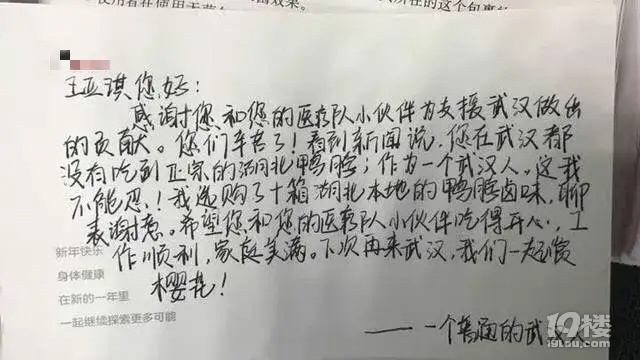 使用者在使用
因效果。
所在的这个包裹
王亚琪您好：
感谢您和您的医疗队小伙伴为支援武汉做出
的贡献。您们辛苦了！看到新闻说，您在武汉都
没有吃到正宗的湖北鸭脖；作为一个武汉人，这我
不能忍！我选购了十箱湖北本地的鸭脖卤味，聊
表谢意。希望您和您的医疗队小伙伴吃得开心，工
作顺利，家庭美满。下次再来武汉，我们一起赏
樱花！
新年快乐
身体健康
在新的一年里
一起继续探索更多可能
——一个普通的武
19楼
19lou.com